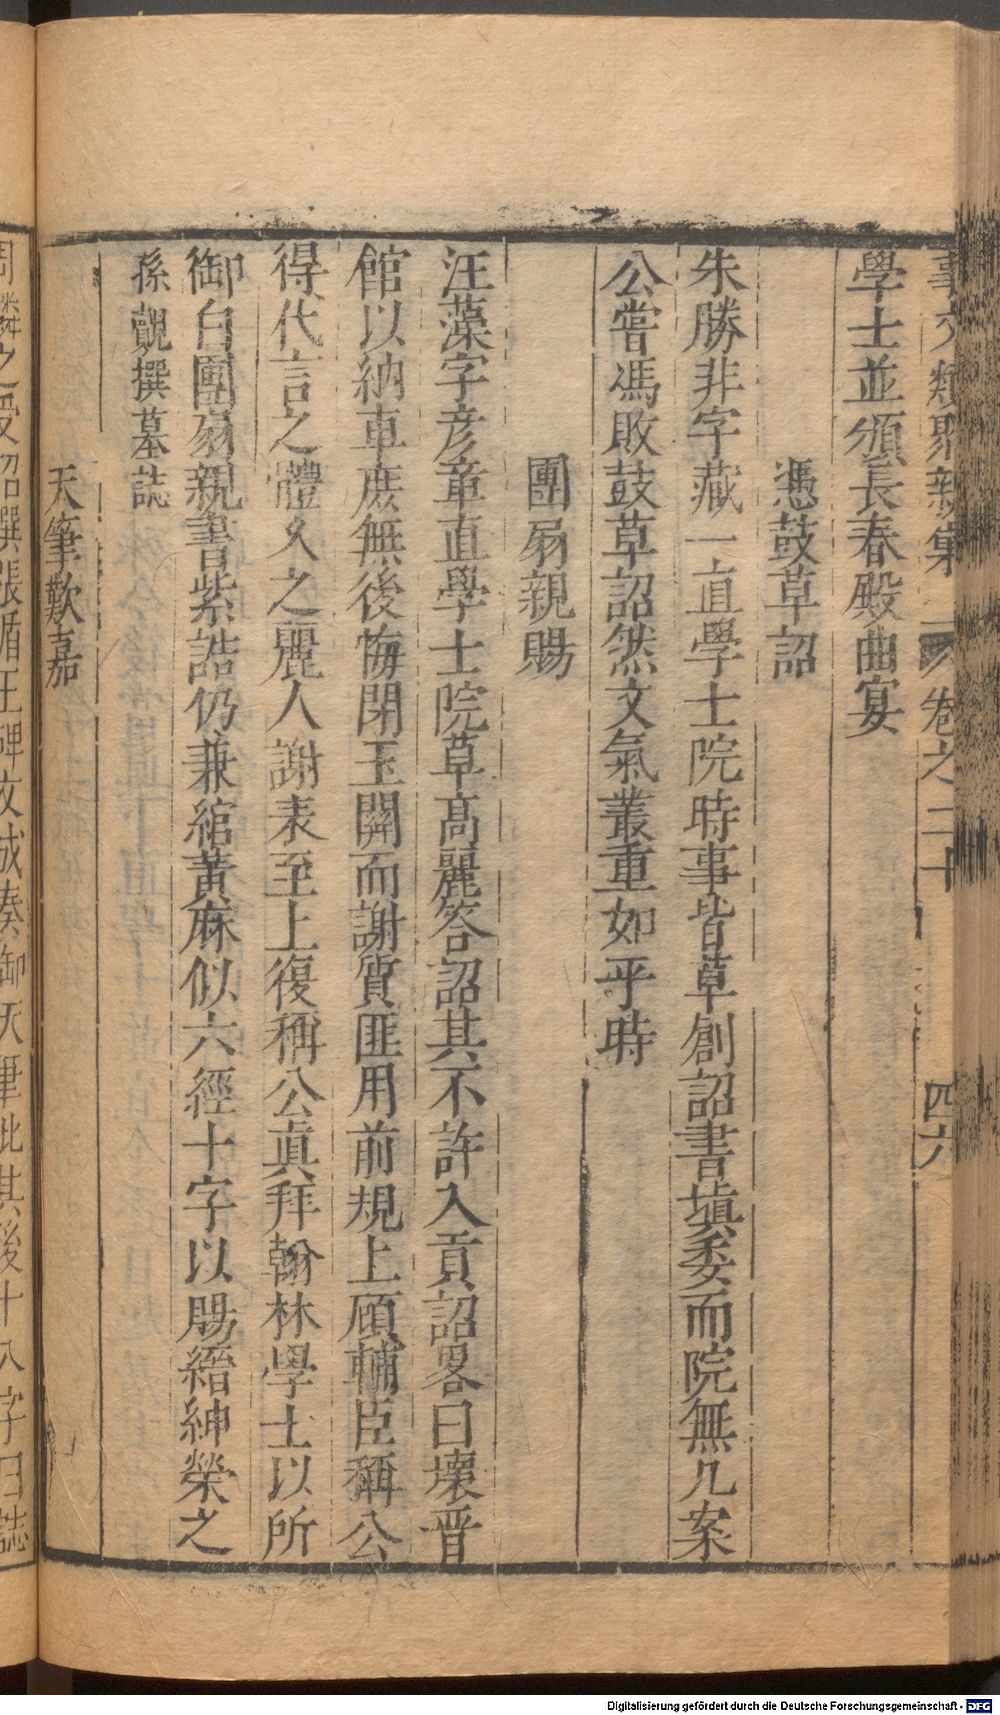 學士並頒長春殿曲宴
憑鼓草詔
朱勝非字藏一直學士院時事皆草創詔書填委而院無几案
公嘗馮敗鼓草詔然文氣嚴重如平時
團扇親賜
汪藻字彦章直學士院草高麗答詔其不許入貢詔畧曰壞晋
館以納車庶無後悔閉玉關而謝質匪用前規上顧輔臣稱公
得代言之體久之麗人謝表至上復稱公真拜翰林學士以所
御白團扇親書紫誥仍兼綰黃麻似六經十字以賜縉紳榮之
孫覿撰墓誌
天筆歎嘉
事文類聚新集 卷之二十 四六
之受詔撰張循王碑文成奏御天筆批其後十八字曰誌
Digitalisierung gefördert durch die Deutsche Forschungsgemeinschaft - DFG